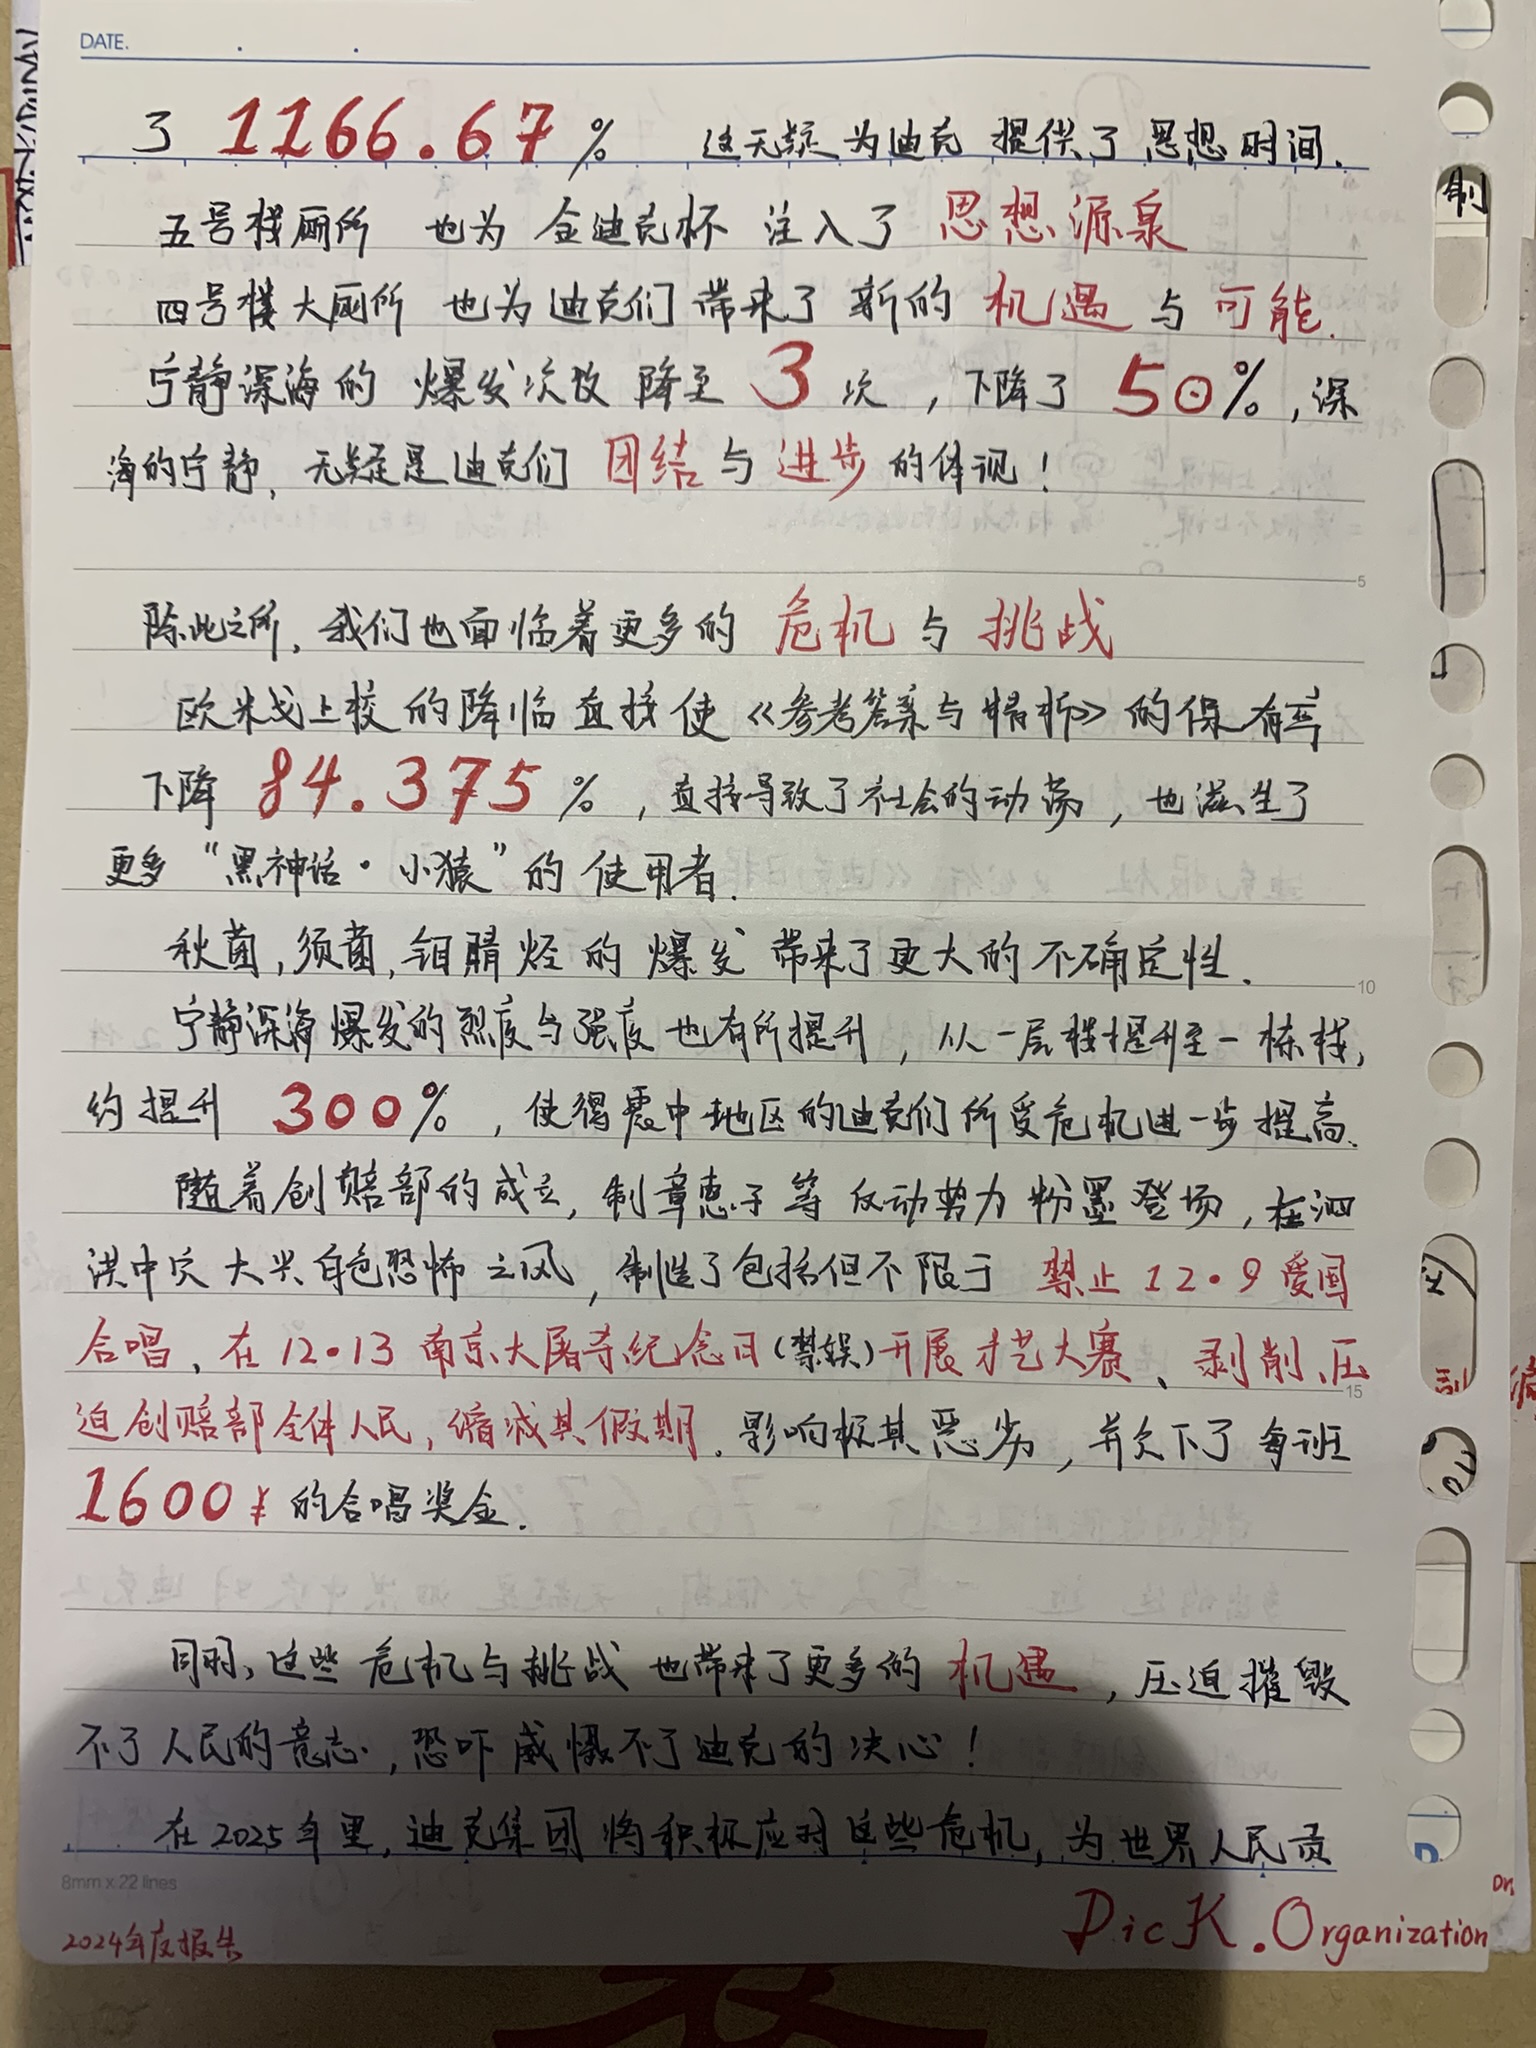 DATE.
了 1166.67% 这无疑为迪克提供了思想时间.
五号楼厕所 也为 金迪克杯 注入了 思想源泉
四号楼大厕所 也为迪克们带来了新的 机遇 与 可能.
宁静深海的 爆发次改 降至 3 次，下降了 50%，深
海的宁静，无疑是迪克们 团结 与 进步 的体现！
5
除此之所，我们也面临着更多的 危机 与 挑战
欧米戈上校的降临直接使《参考答案与精析》的保有率
下降 84.375%，直接导致了社会的动荡，也滋生了
更多“黑神话·小猿”的使用者.
秋菌，须菌，钼腈烃的爆发带来了更大的不确定性.
10
宁静深海爆发的烈度与强度也有所提升，从一层楼提升至一栋楼，
约提升 300%，使得震中地区的迪克们所受危机进一步提高.
随着创赔部的成立，制章惠子等反动势力粉墨登场，在泗
洪中突大兴白色恐怖之风，制造了包括但不限于 禁止12·9爱国
合唱、在12·13南京大屠杀纪念日(禁娱)开展才艺大赛、剥削、压
15
迫创赔部全体人民，缩减其假期.影响极其恶劣，并欠下了每班
1600¥的合唱奖金.
同时，这些危机与挑战也带来了更多的 机遇，压迫摧毁
不了人民的意志，恐吓威慑不了迪克的决心！
在2025年里，迪克集团将积极应对这些危机，为世界人民贡
8mm x 22 lines
2024年度报告
DicK.Organization
制